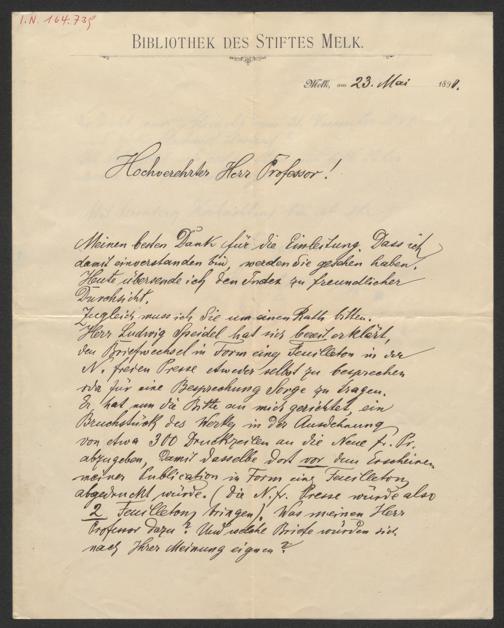 I.N. 164.735
BIBLIOTHEK DES STIFTES MELK.
Melk, am 23. Mai 1898.
Hochverehrter Herr Professor!
Meinen besten Dank für die Einleitung. Dass ich
damit einverstanden bin, werden Sie gesehen haben.
Heute übersende ich den Index zu freundlicher
Durchsicht.
Zugleich muss ich Sie um einen Rath bitten.
Herr Ludwig Speidel hat sich bereit erklärt,
den Briefwechsel in Form eines Feuilleton in der
N. freien Presse etweder selbst zu besprechen
oder für eine Besprechung Sorge zu tragen.
Er hat nun die Bitte an mich gerichtet, ein
Bruchstück des Werkes in der Ausdehnung
von etwa 300 Druckzeilen an die Neue fr. Pr.
abzugeben, damit dasselbe dort vor dem Erscheinen
meiner Publication in Form eines Feuilletons
abgedruckt würde. (die N. fr. Presse würde also
2 Feuilletons bringen). Was meinen Herr
Professor dazu? Und welche Briefe würden sich
nach Ihrer Meinung eignen?